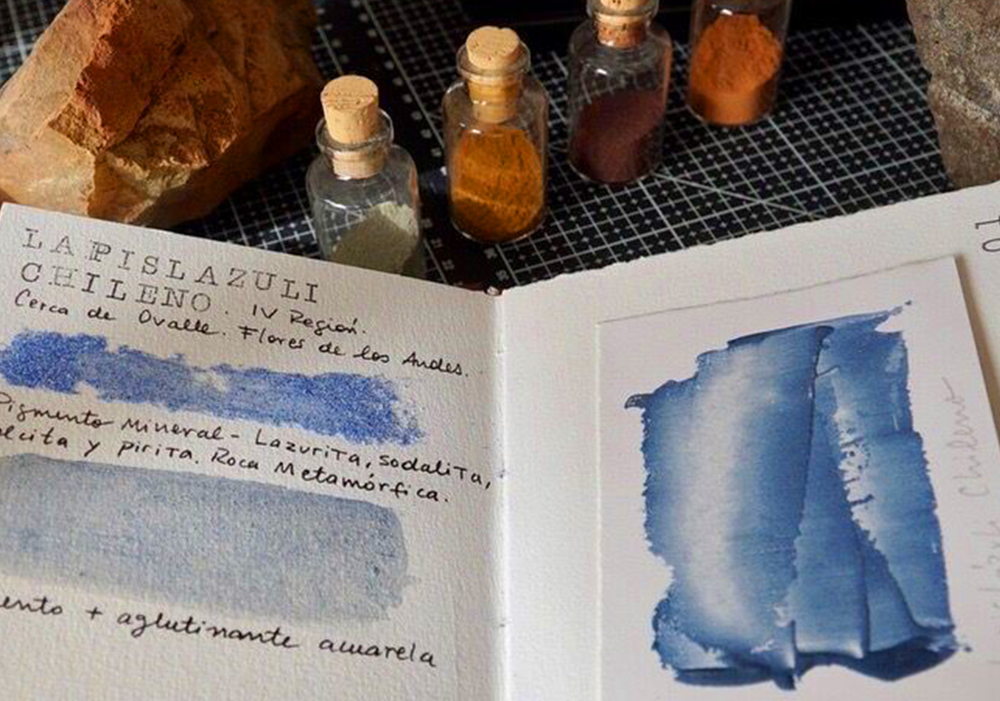 LAPISLAZULI
CHILENO. IV Región.
Cerca de Ovalle. Flores de los Andes.
Pigmento Mineral - Lazurita, sodalita,
y pirita. Roca Metamórfica.
+ aglutinante acuarela
Chileno